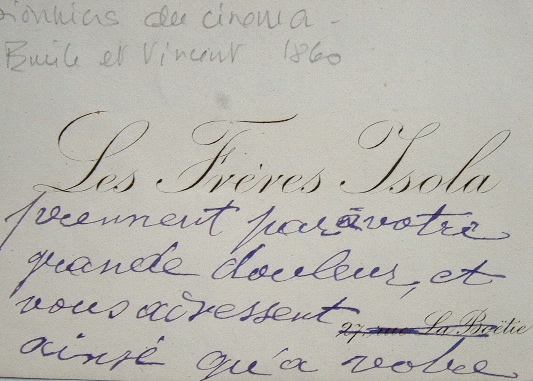 pionniers du cinema -
Emile et Vincent 1860
Les Frères Isola
prennent part à votre
grande douleur, et
vous adressent
27, rue La Boëtie
ainsi qu'a votre